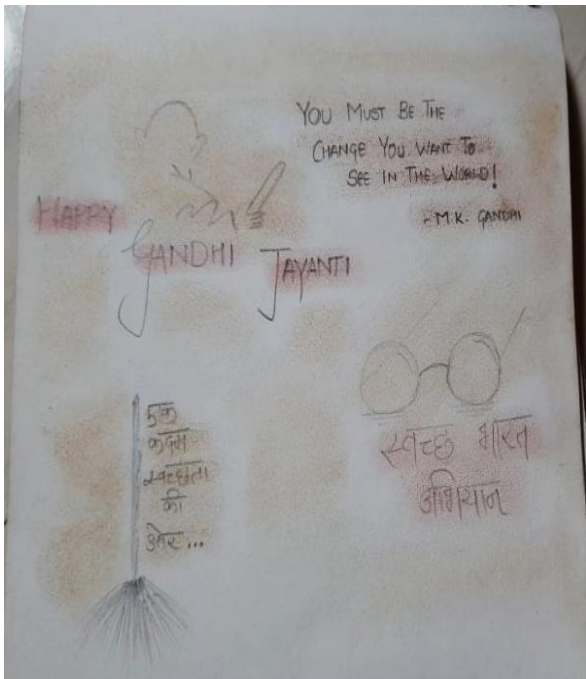 YOU MUST BE THE
CHANGE YOU WANT TO
SEE IN THE WORLD!
- M.K. GANDHI
HAPPY
GANDHI JAYANTI
एक
कदम
स्वच्छता
की
ओर...
स्वच्छ भारत
अभियान